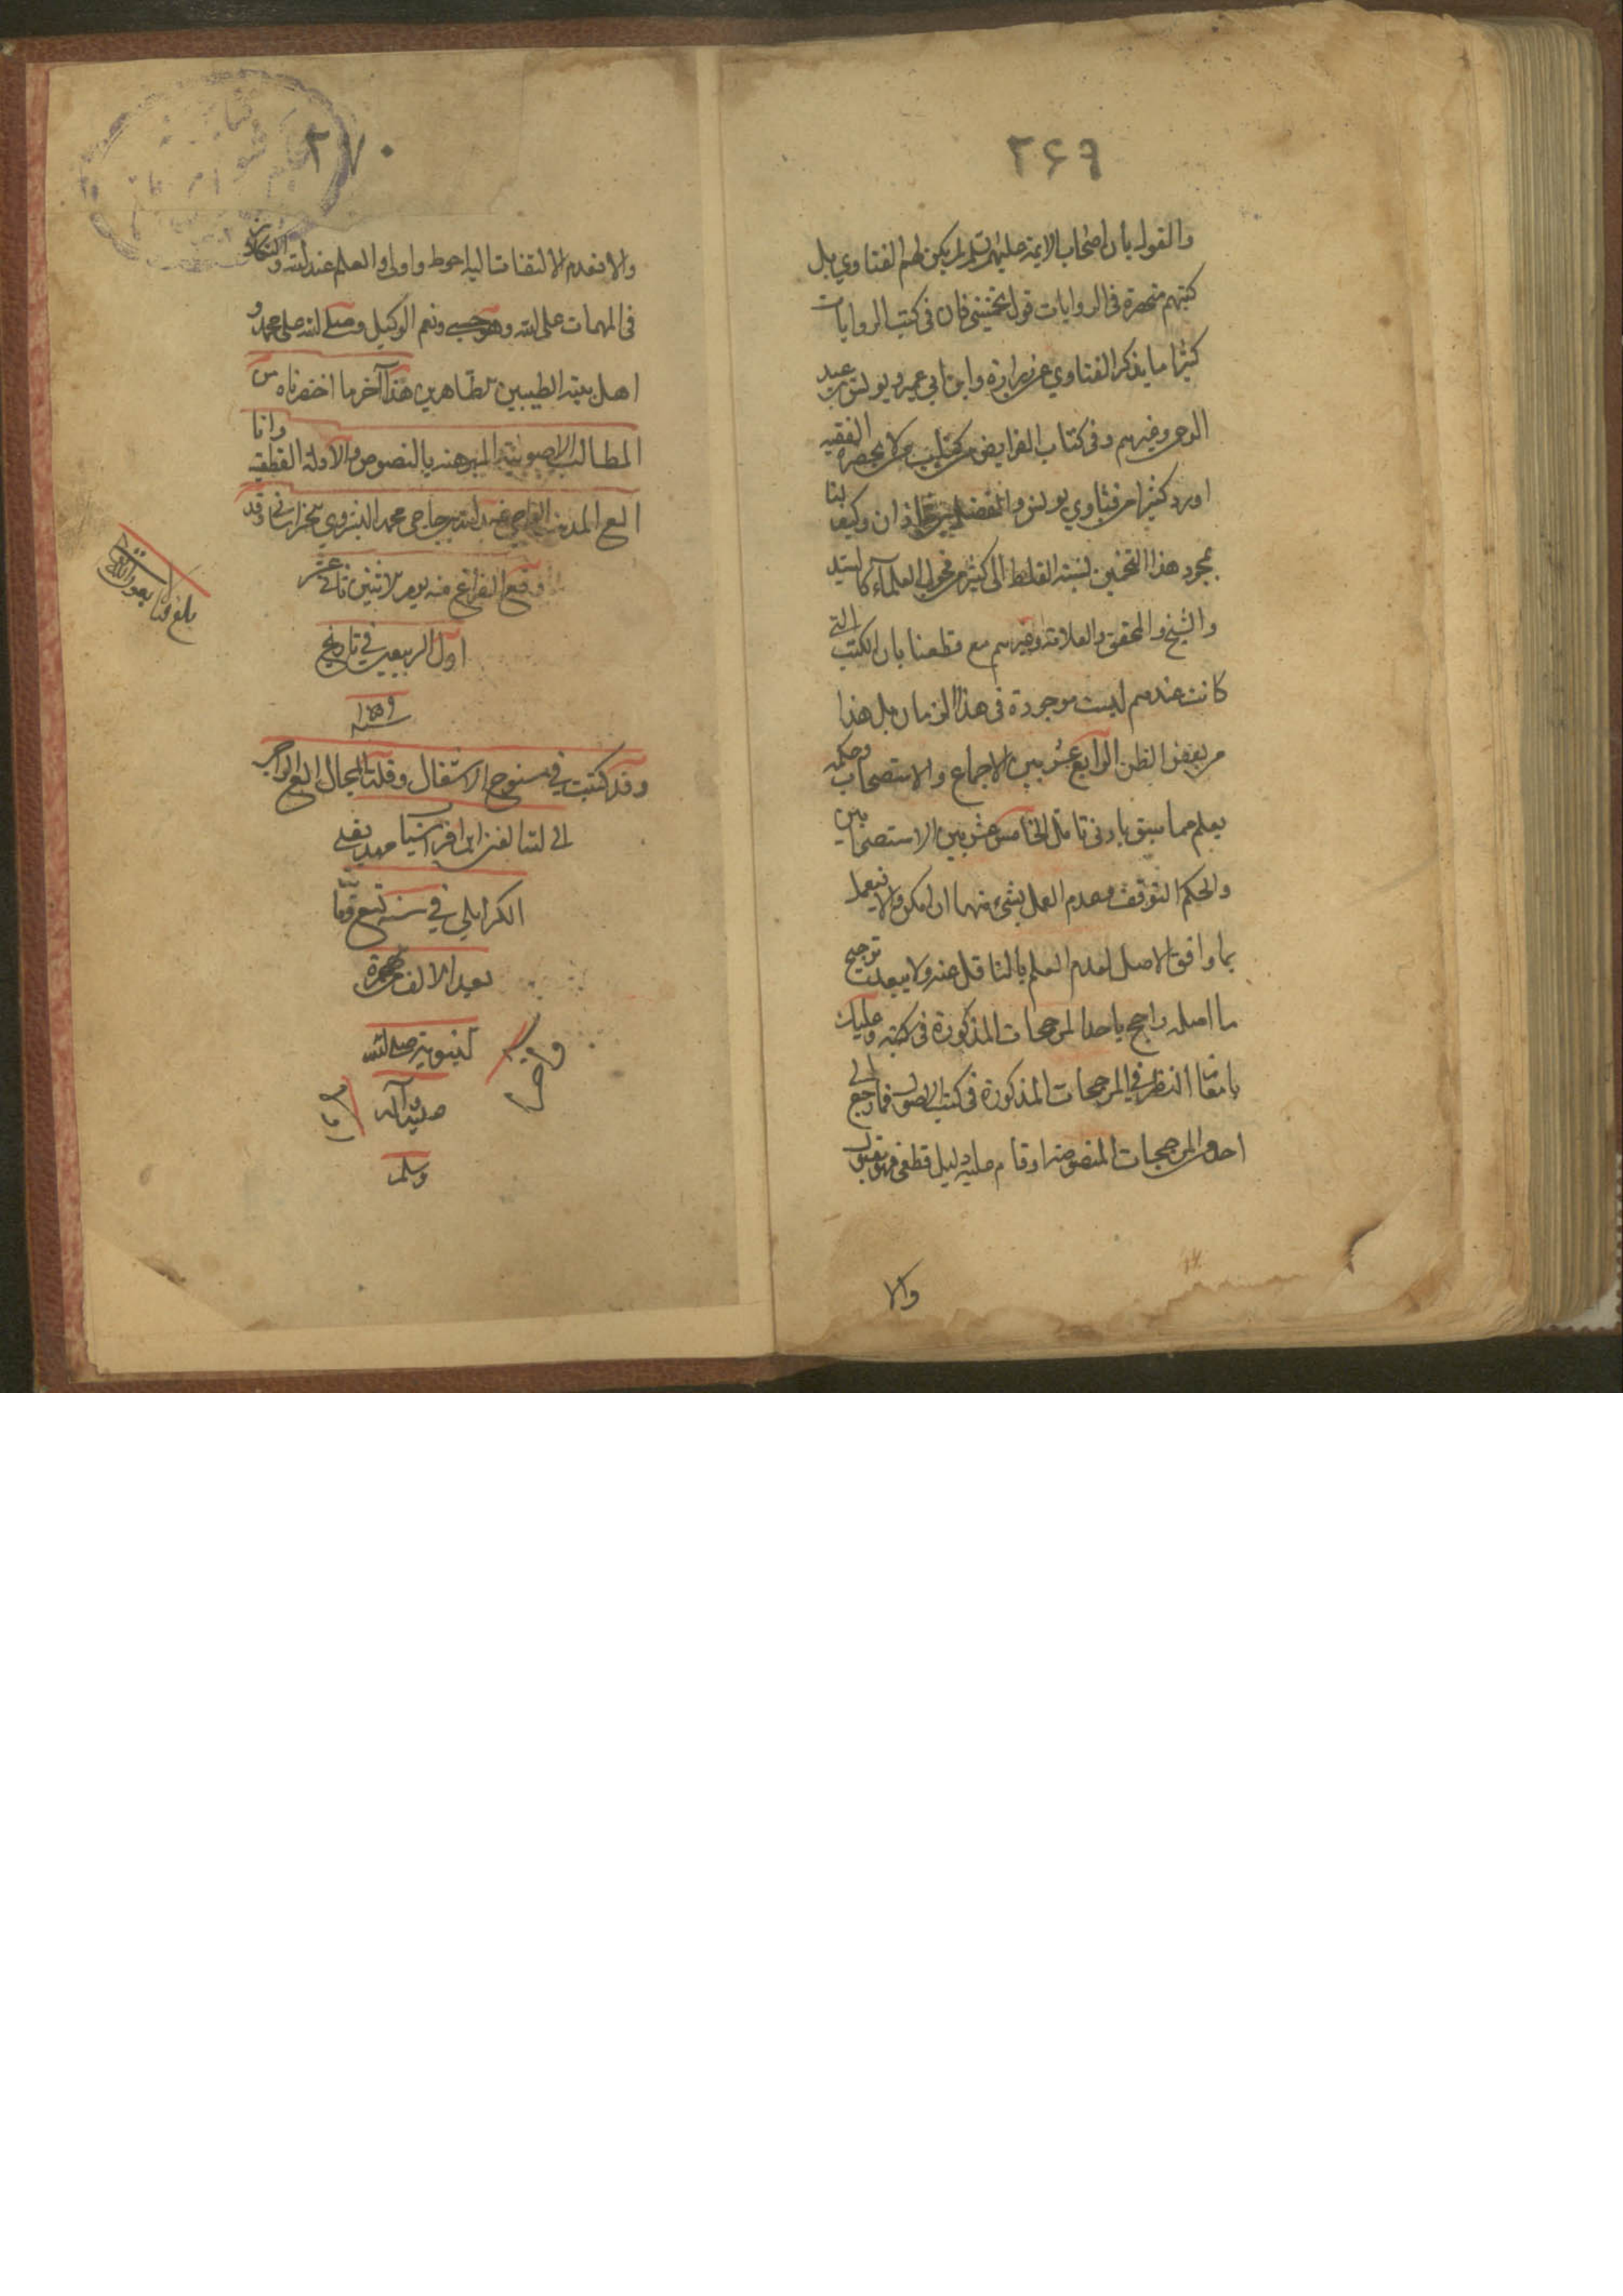 ٢۶٩
والقول بان اصحاب الايمة عليهم السلم لم يكن لهم الفتاوي بل
كتبهم منحصرة في الروايات قول تخميني فان في كتب الروايات
كثيرا ما يذكر الفتاوي عن زرارة وابن ابي عمير ويونس بن عبد
الرحمن وغيرهم وفي كتاب الفرايض من كتاب من لا يحضره الفقيه
اورد كثيرا من فتاوي يونس والفضل بن شاذان وكيف لنا
بمجرد هذا التخمين نسبة الغلط الى كثير من فحول العلماء كالسيد
والشيخ والمحقق والعلامة وغيرهم مع قطعنا بان الكتب التي
كانت عندهم ليست موجودة في هذا الزمان بل هذا
من بعض الظن الرابع عشر بين الاجماع والاستصحاب وحكمه
يعلم مما سبق بادنى تامل الخامس عشر بين الاستصحابين
والحكم التوقف وعدم العمل بشيء منهما ان امكن والا فيعمل
بما وافق الاصل لعدم العلم بالناقل عنه ولا يبعد ترجيح
ما اصله راجح باحد المرجحات المذكورة في كتبه وعليك
بامعان النظر في المرجحات المذكورة في كتب الاصول فما رجع الى
احد المرجحات المنصوصة او قام عليه دليل قطعي فهو مقبول
والا
٢٧٠
والا فعدم الالتفات اليه احوط واولى والعلم عند الله والتكلان
في المهمات على الله وهو حسبي ونعم الوكيل وصلى الله على محمد و
اهل بيته الطيبين الطاهرين هذا آخر ما اختصرناه من
المطالب الاصولية المبرهنة بالنصوص والادلة القطعية وانا
العبد المذنب عبد الله بن حاجي محمد البشروي الخراساني وقد
وقع الفراغ منه يوم الاثنين ثاني عشر
اول الربيعين في تاريخ
سنة ١٠٥٩
وقد كتبت في سنوح الاشتغال وقلة المجال العبد الراجي
الى الله الغني ابن افراسيا مهديقلي
الكرايلي في سنة تسع وثمانين
بعد الالف من هجرة
النبوية صلى الله
عليه وآله
وسلم
بلغ قبالا